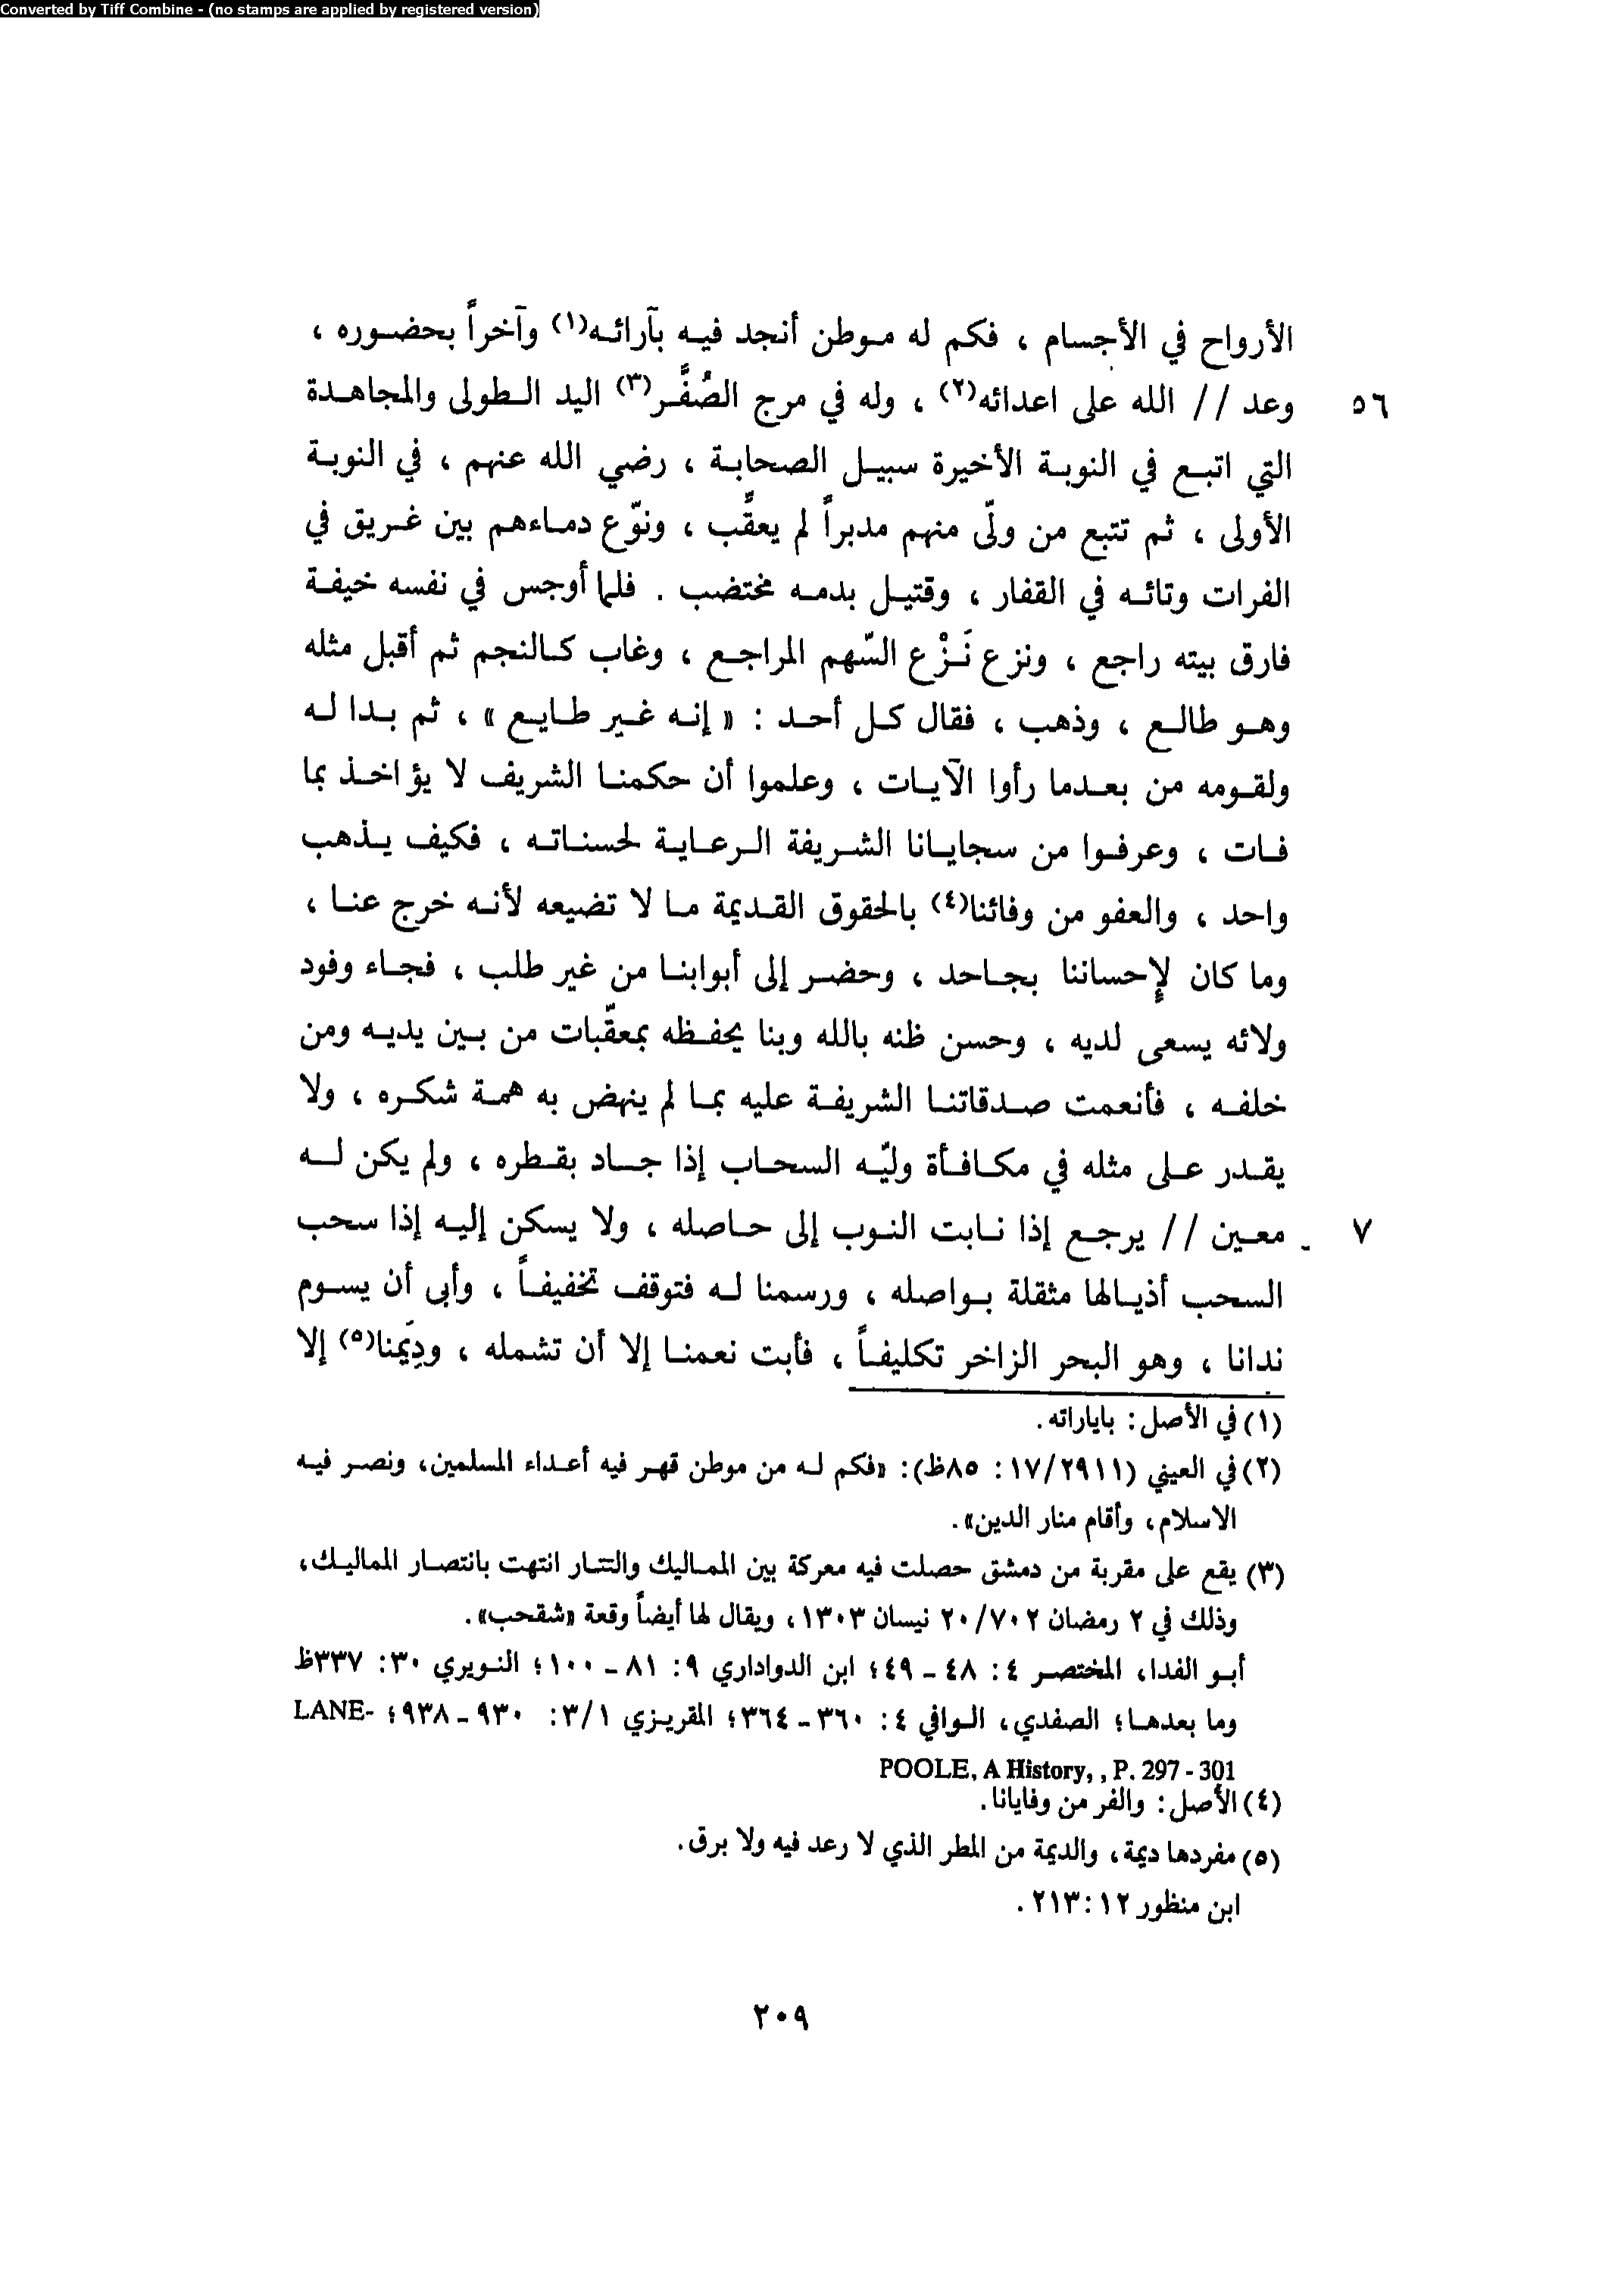 Converted by Tiff Combine - (no stamps are applied by registered version)
الأرواح في الأجسام ، فكم له موطن أنجد فيه بآرائه(١) وآخراً بحضوره ،
٥٦ وعد // الله على اعدائه(٢) ، وله في مرج الصُفَّر(٣) اليد الطولى والمجاهدة
التي اتبع في النوبة الأخيرة سبيل الصحابة ، رضي الله عنهم ، في النوبة
الأولى ، ثم تتبع من ولّى منهم مدبراً لم يعقُّب ، ونوّع دماءهم بين غريق في
الفرات وتائه في القفار ، وقتيل بدمه مختضب . فلما أوجس في نفسه خيفة
فارق بيته راجع ، ونزع نَزْع السّهم المراجع ، وغاب كالنجم ثم أقبل مثله
وهو طالع ، وذهب ، فقال كل أحد : « إنه غير طايع » ، ثم بدا له
ولقومه من بعدما رأوا الآيات ، وعلموا أن حكمنا الشريف لا يؤاخذ بما
فات ، وعرفوا من سجايانا الشريفة الرعاية لحسناته ، فكيف يذهب
واحد ، والعفو من وفائنا(٤) بالحقوق القديمة ما لا تضيعه لأنه خرج عنا ،
وما كان لإحساننا بجاحد ، وحضر إلى أبوابنا من غير طلب ، فجاء وفود
ولائه يسعى لديه ، وحسن ظنه بالله وبنا يحفظه بمعقّبات من بين يديه ومن
خلفه ، فأنعمت صدقاتنا الشريفة عليه بما لم ينهض به همة شكره ، ولا
يقدر على مثله في مكافأة وليّه السحاب إذا جاد بقطره ، ولم يكن له
٧ معين // يرجع إذا نابت النوب إلى حاصله ، ولا يسكن إليه إذا سحب
السحب أذيالها مثقلة بواصله ، ورسمنا له فتوقف تخفيفاً ، وأبى أن يسوم
ندانا ، وهو البحر الزاخر تكليفاً ، فأبت نعمنا إلا أن تشمله ، ودِيَمنا(٥) إلا
(١) في الأصل : باياراته .
(٢) في العيني (١٧/٢٩١١ : ٨٥ظ): «فكم له من موطن قهر فيه أعداء المسلمين، ونصر فيه
الاسلام، وأقام منار الدين» .
(٣) يقع على مقربة من دمشق حصلت فيه معركة بين المماليك والتتار انتهت بانتصار المماليك،
وذلك في ٢ رمضان ٢٠/٧٠٢ نيسان ١٣٠٣، ويقال لها أيضاً وقعة «شقحب» .
أبو الفدا، المختصر ٤ : ٤٨ - ٤٩؛ ابن الدواداري ٩: ٨١ - ١٠٠؛ النويري ٣٠: ٣٣٧ظ
وما بعدها؛ الصفدي، الوافي ٤ : ٣٦٠ - ٣٦٤؛ المقريزي ٣/١ : ٩٣٠ - ٩٣٨؛ LANE-
POOLE, A History, , P. 297 - 301
(٤) الأصل : والفر من وفايانا .
(٥) مفردها ديمة، والديمة من المطر الذي لا رعد فيه ولا برق .
ابن منظور ١٢ : ٢١٣ .
٢٠٩